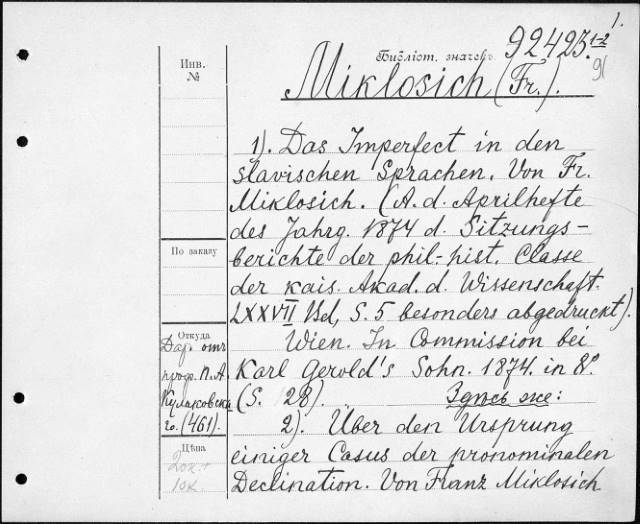 1.
Библіот. значекъ 92423.1-2
91
Инв.
№
Miklosich (Fr.).
1). Das Imperfect in den
slavischen Sprachen. Von Fr.
Miklosich. (A. d. Aprilhefte
des Jahrg. 1874 d. Sitzungs-
berichte der phil.-hist. Classe
der kais. Akad. d. Wissenschaft.
LXXVII Bd, S. 5 besonders abgedruckt).
Wien. In Commission bei
Karl Gerold's Sohn. 1874. in 8º.
(S. 28). Здѣсь же:
2). Über den Ursprung
einiger Casus der pronominalen
Declination. Von Franz Miklosich
По заказу
Откуда
Дар. отъ
проф. П. А.
Кулаковска
го. (461).
Цѣна
20к.+
10к.